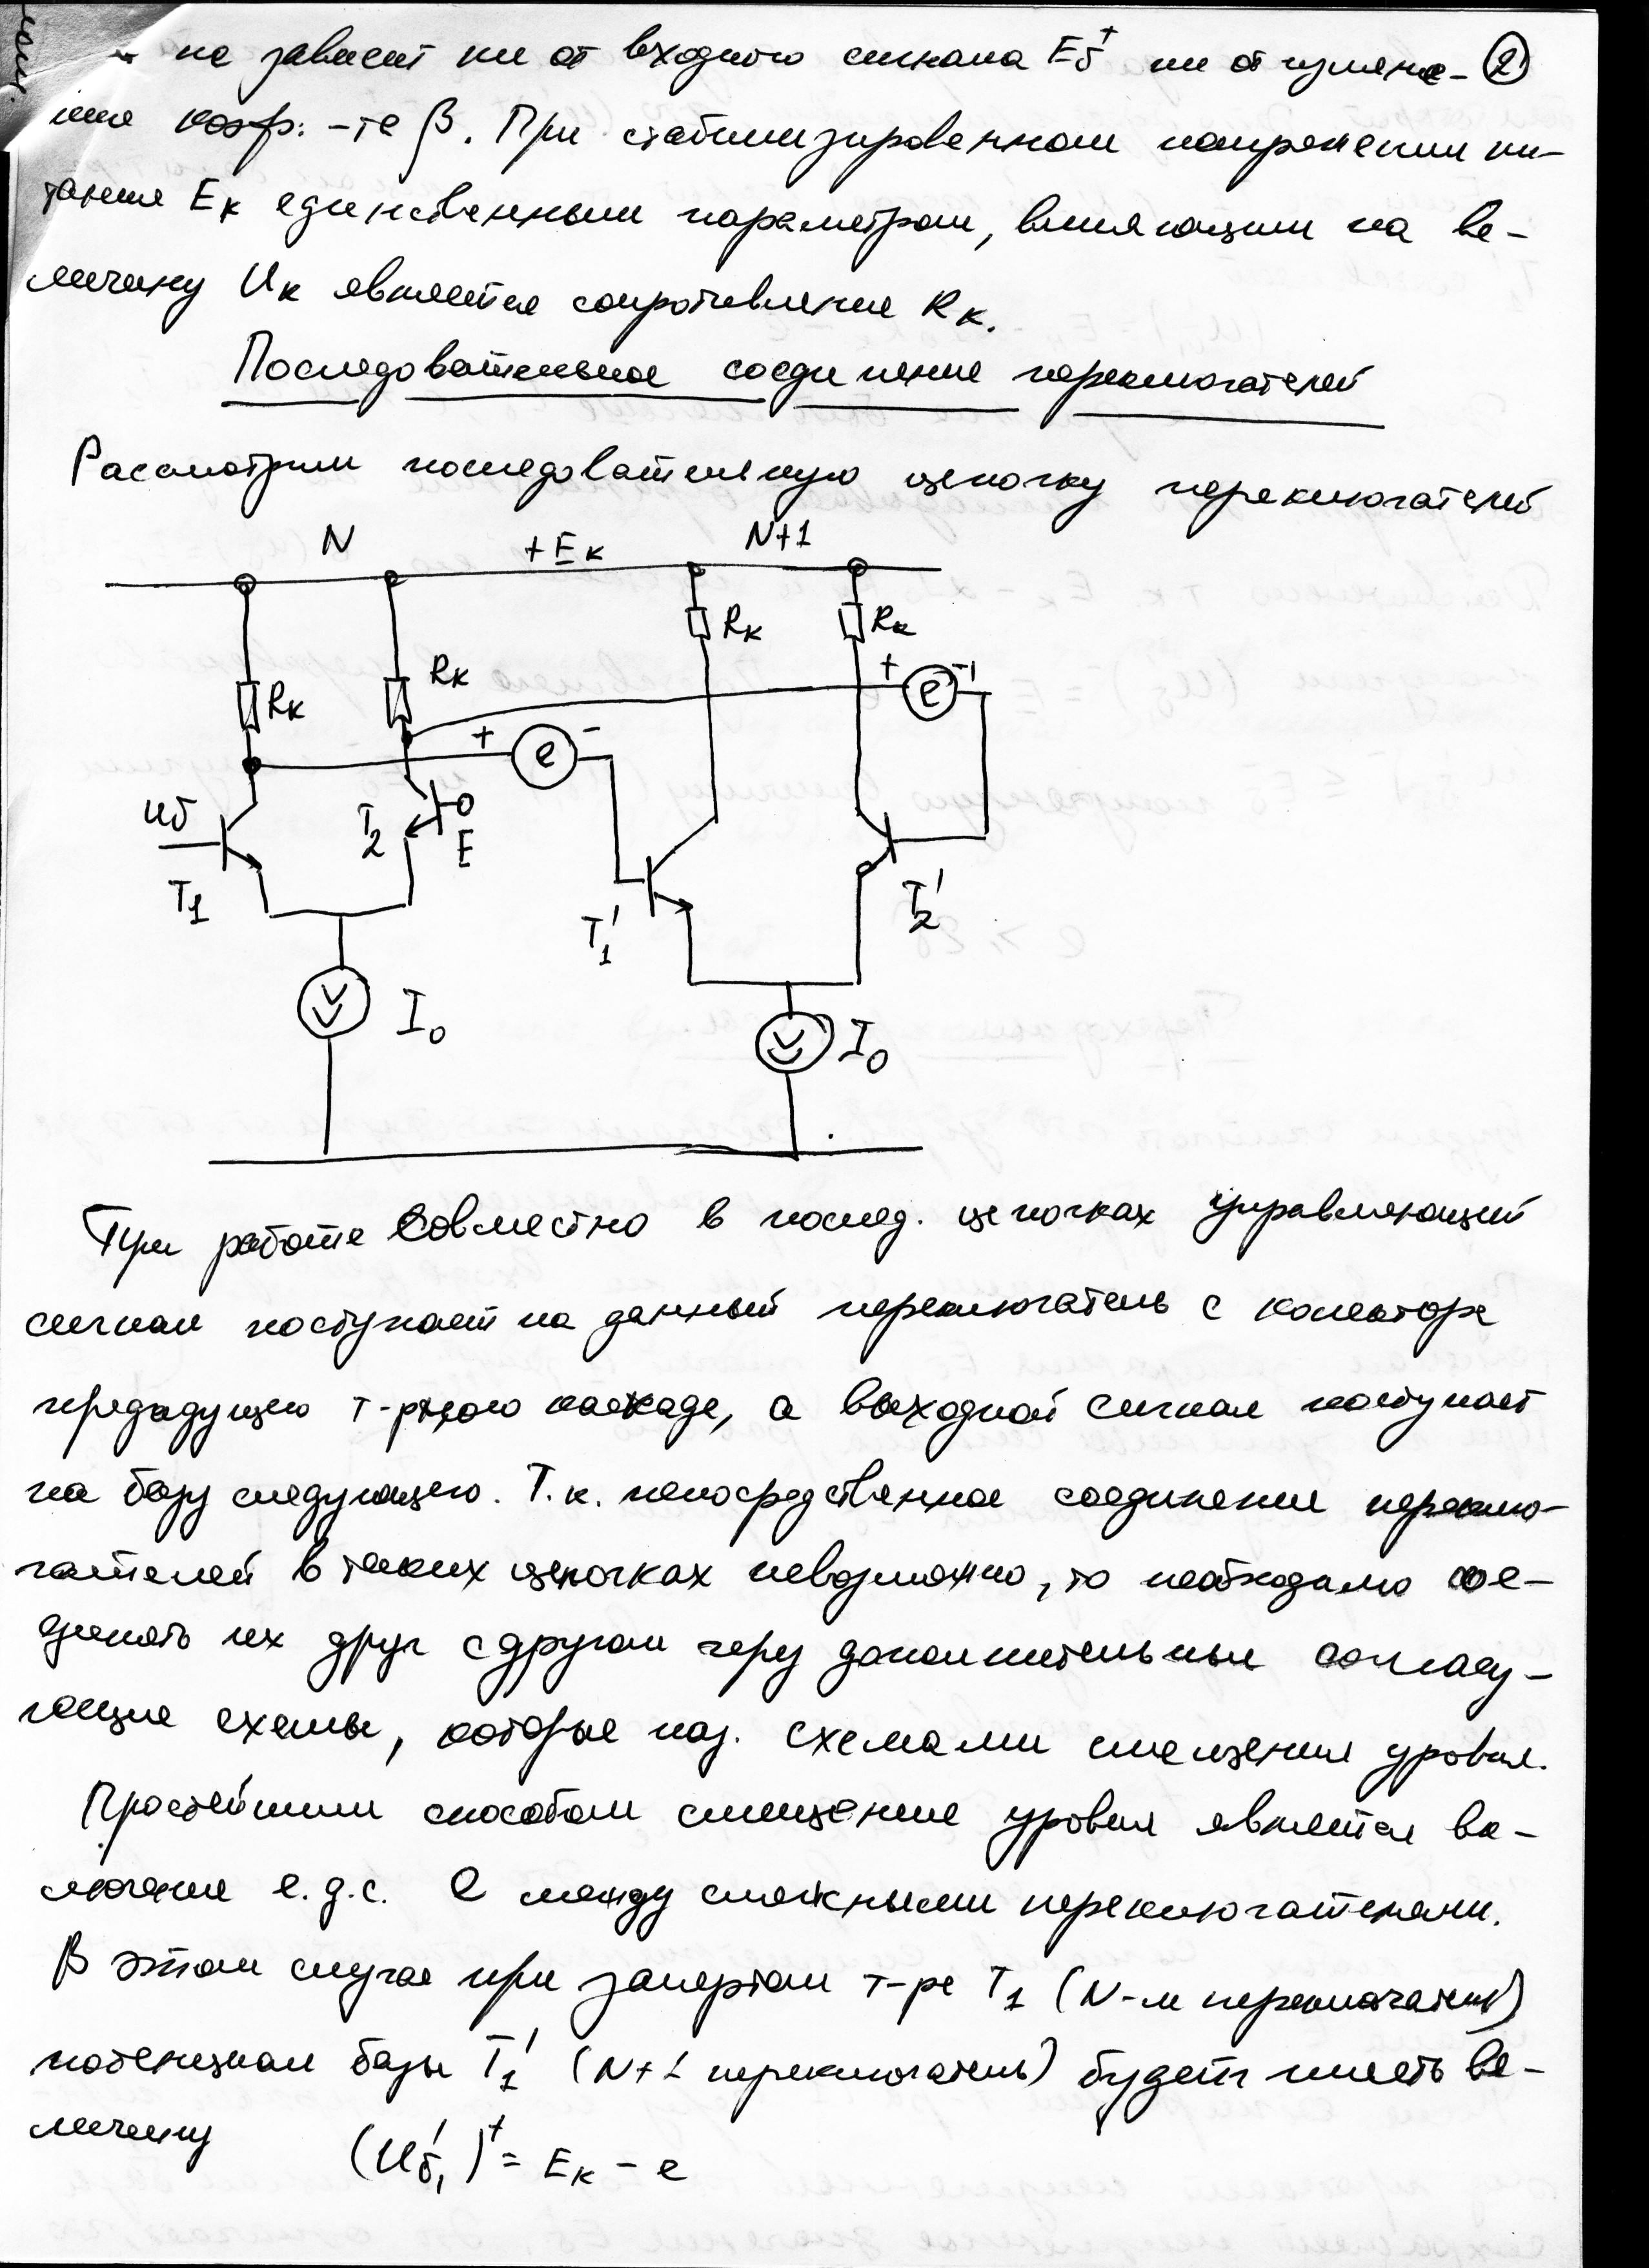 не зависит ни от входного сигнала Eб⁺ ни от измене- ②
ния коэф.-та β. При стабилизированном напряжении пи-
тания Eк единственным параметром, влияющим на ве-
личину Uк является сопротивление Rк.
Последовательное соединение переключателей
Рассмотрим последовательную цепочку переключателей
N +Eк N+1
Rк Rк
Rк
Rк
+ e -
+ e -
Uб
T2 E
T1
T1' T2'
I0
I0
При работе совместно в послед. цепочках управляющий
сигнал поступает на данный переключатель с колектора
предыдущего т-рного каскада, а выходной сигнал поступает
на базу следующего. Т.к. непосредственное соединение переклю-
чателей в таких цепочках невозможно, то необходимо сое-
динять их друг с другом через дополнительные согласу-
ющие схемы, которые наз. схемами смещения уровня.
Простейшим способом смещения уровня является вк-
лючение е.д.с. e между смежными переключателями.
В этом случае при запертом т-ре T1 (N-м переключателе)
потенциал базы T1' (N+1 переключатель) будет иметь ве-
личину (U'б1)⁺ = Eк - e